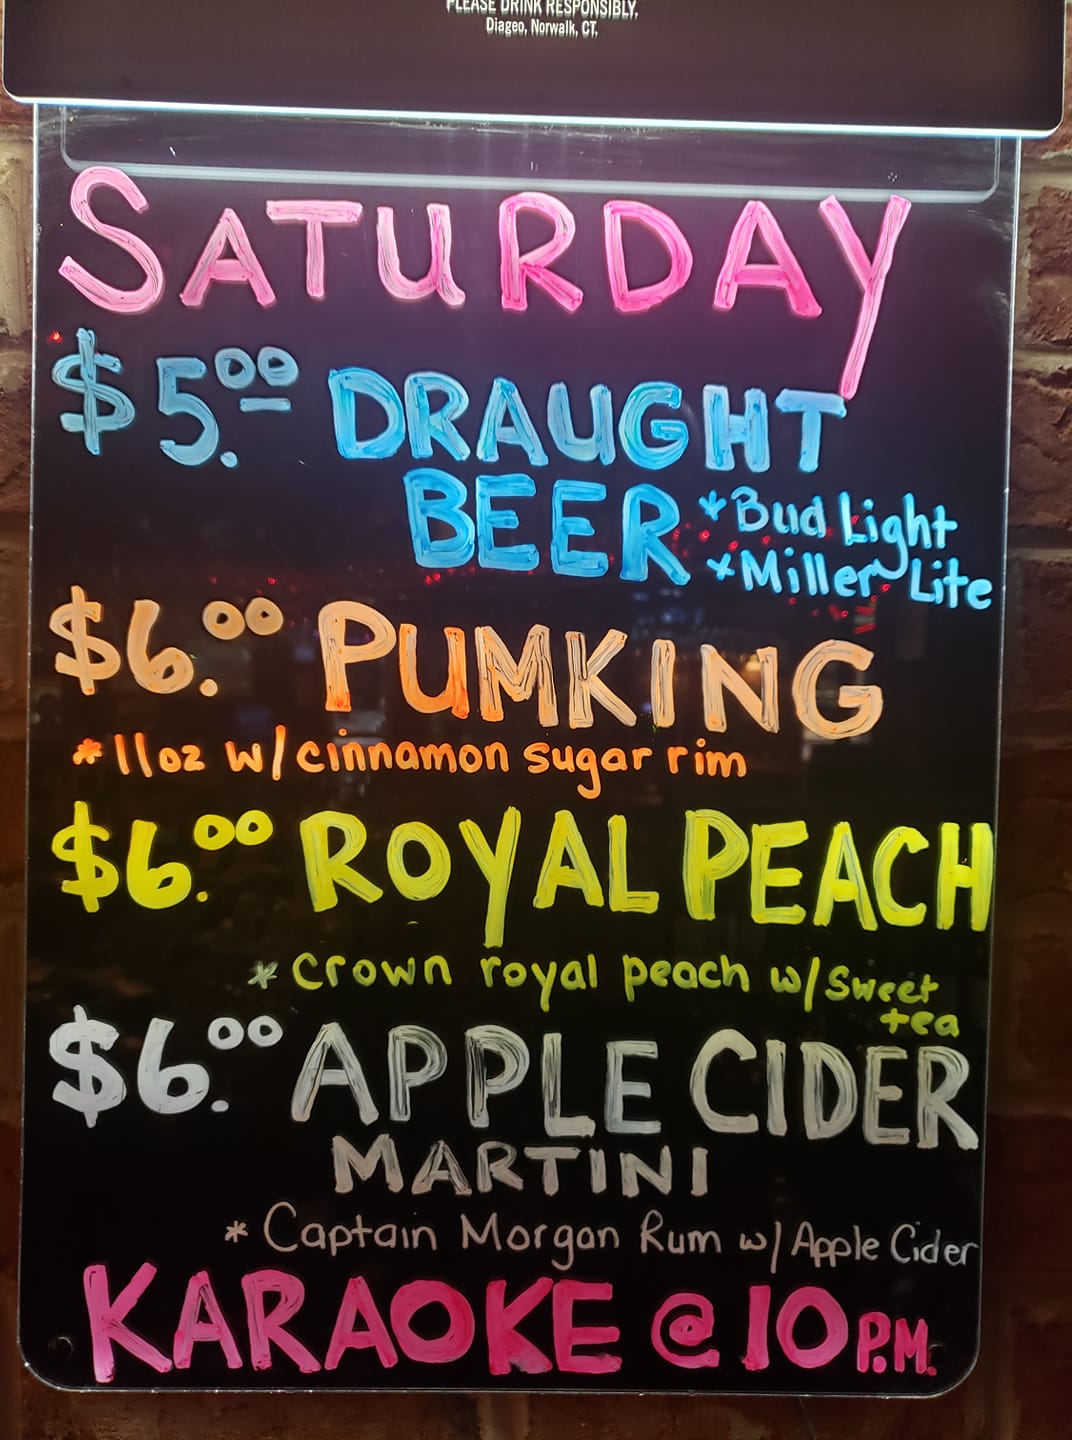 PLEASE DRINK RESPONSIBLY.
Diageo, Norwalk, CT.
SATURDAY
$5.00 DRAUGHT
BEER *Bud Light
*Miller Lite
$6.00 PUMKING
*11oz w/cinnamon sugar rim
$6.00 ROYAL PEACH
*crown royal peach w/sweet
tea
$6.00 APPLE CIDER
MARTINI
*Captain Morgan Rum w/Apple Cider
KARAOKE @ 10 P.M.